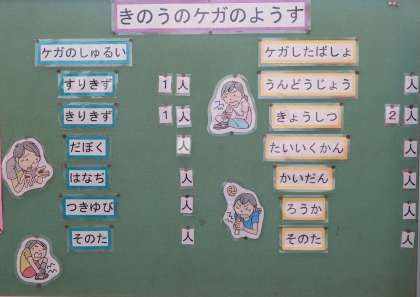 きのうのケガのようす
ケガのしゅるい
すりきず 1人
きりきず 1人
だぼく 人
はなぢ 人
つきゆび 人
そのた 人
ケガしたばしょ
うんどうじょう 人
きょうしつ 2人
たいいくかん 人
かいだん 人
ろうか 人
そのた 人